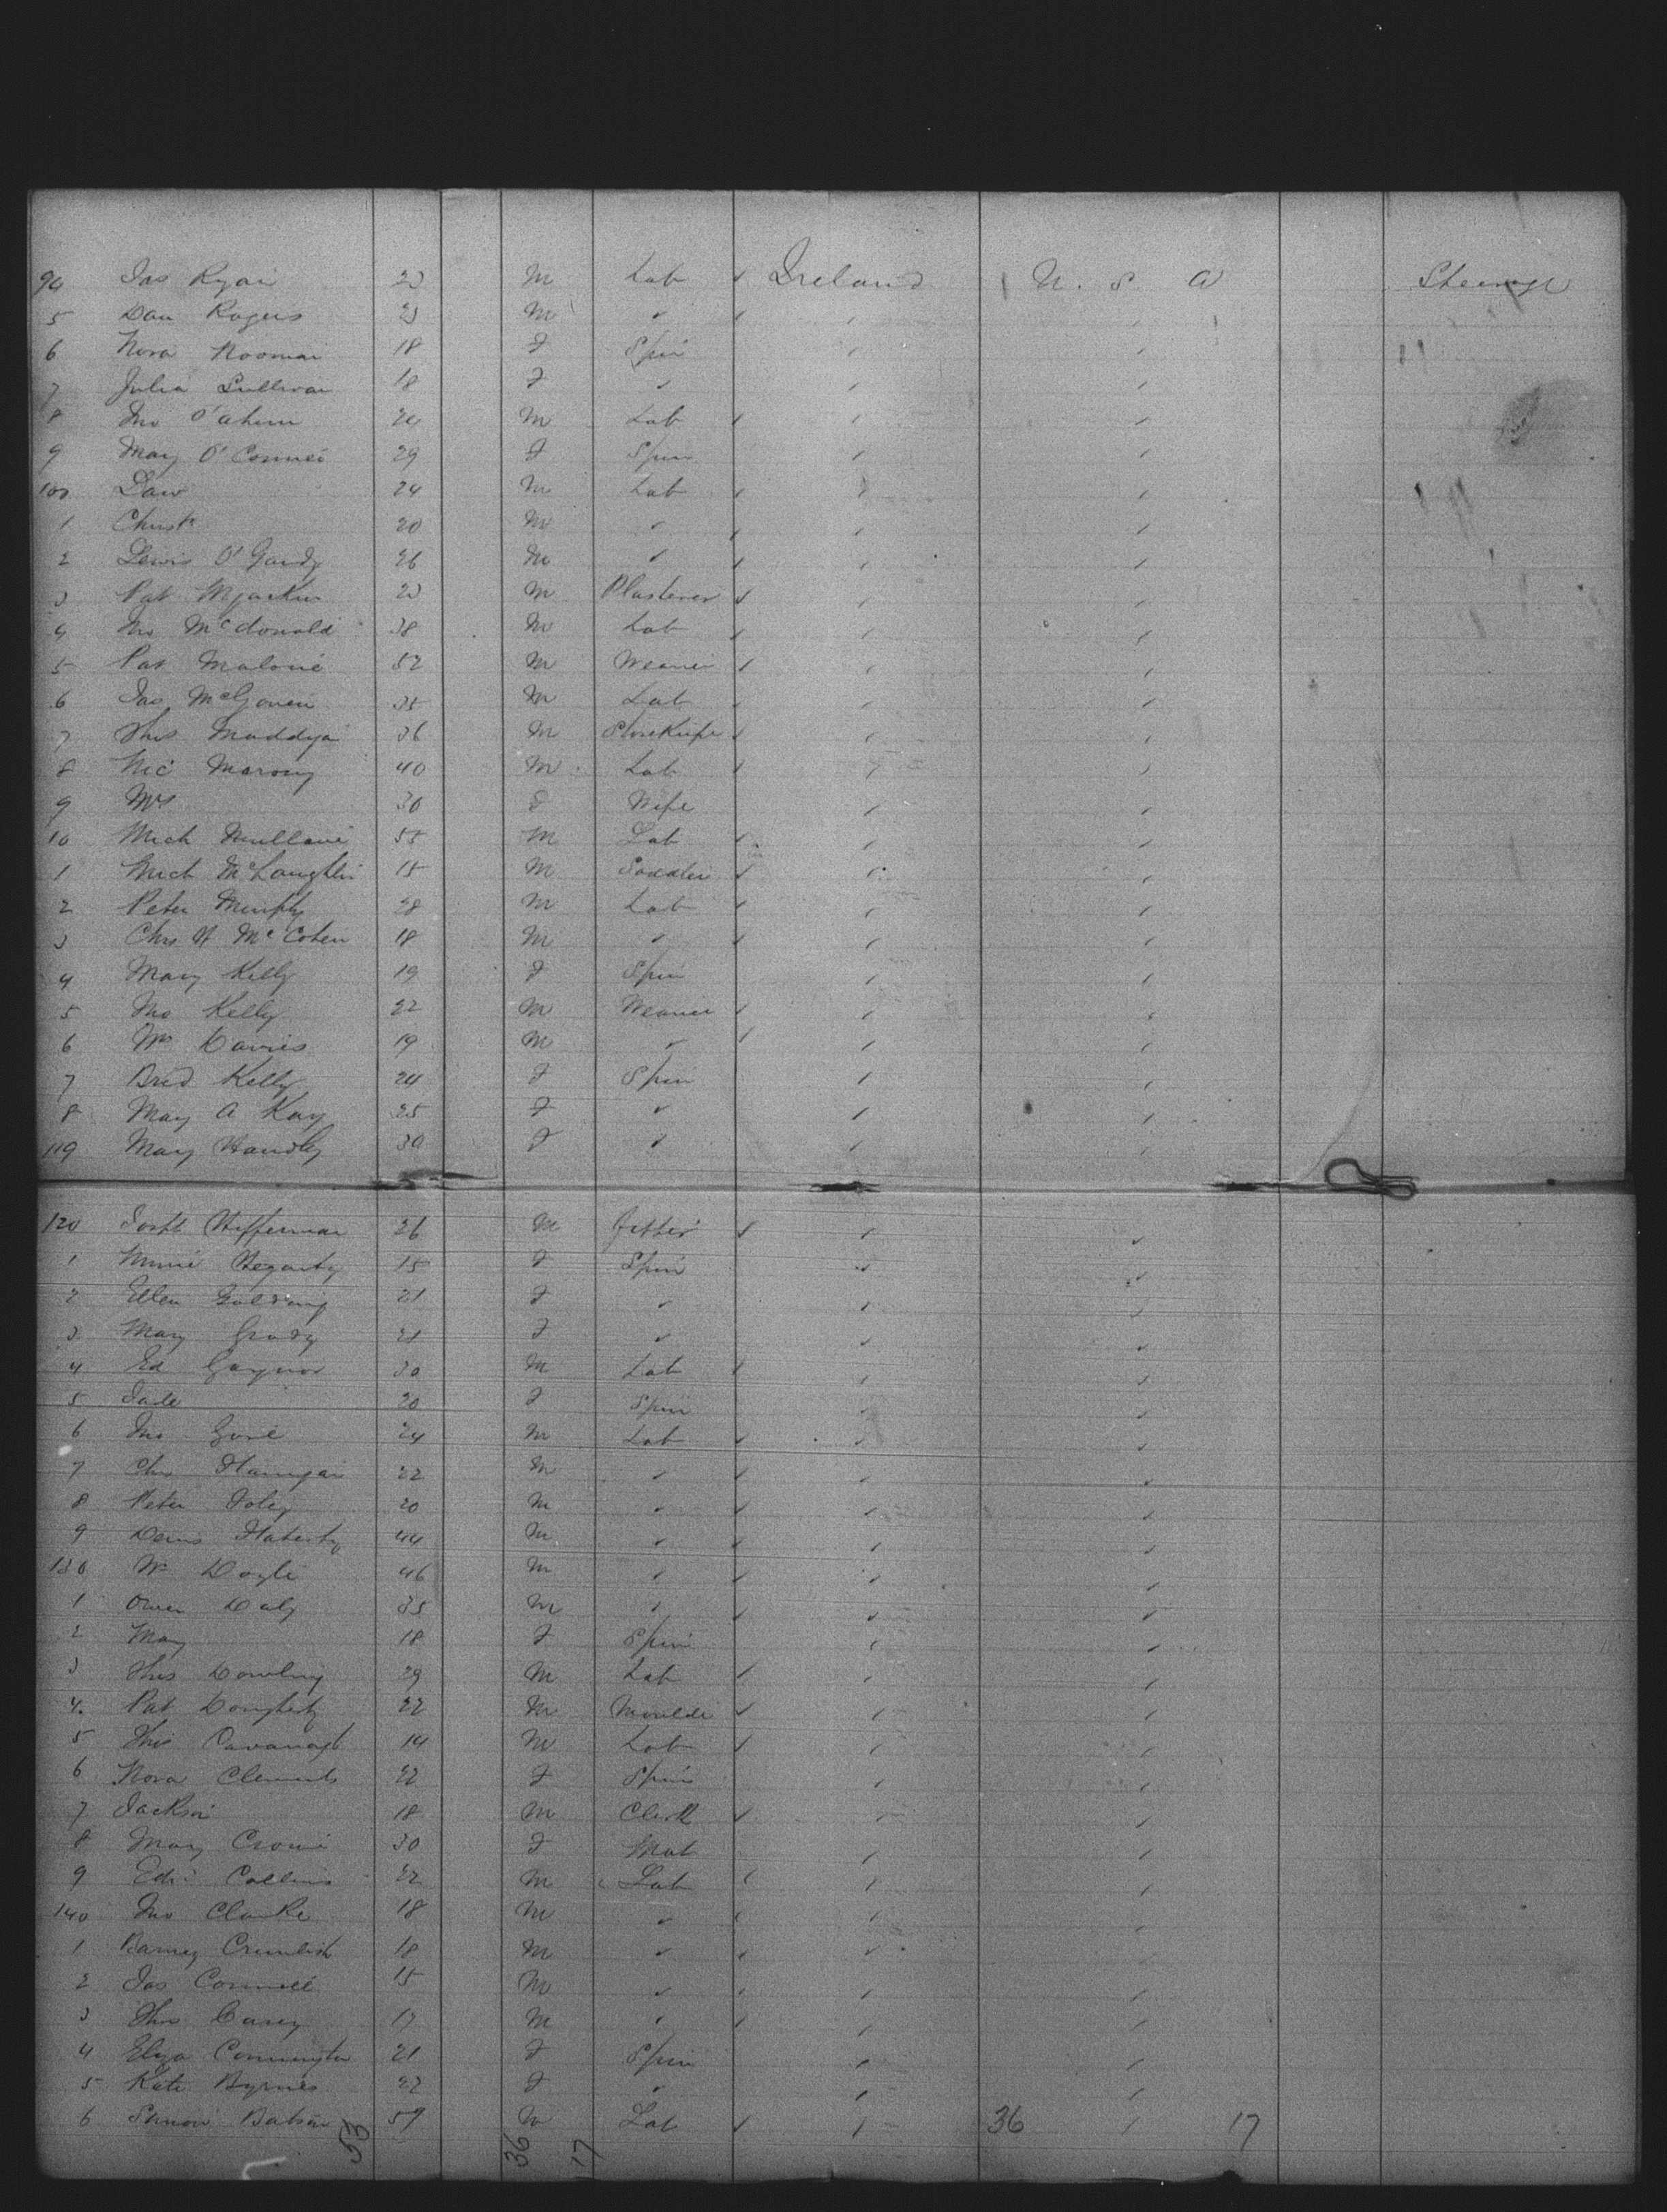 94 Jas Ryan 23 M Lab ✓ Ireland U. S. A Steerage
5 Dan Rogers 23 M ✓
6 Nora Noonan 18 F Spin
7 Julia Sullivan 18 F ✓
8 Jno O'ahern 24 M Lab
9 Mary O'Connei 29 F Spin
100 Law 24 M Lab
1 Christr 20 M ✓
2 Lewis O'Gandy 26 M ✓
3 Pat 23 M Plasterer
4 Jno McDonald 38 M Lab
5 Pat Malone 52 M Weaver
6 Jas McGoven 35 M Lab
7 Ths Maddyn 36 M Storekeepe
8 Mic Marony 40 M Lab
9 Mrs 30 F Wife
10 Mich Mullane 55 M Lab
1 Mich McLaughlin 15 M Saddler
2 Peter Murphy 28 M Lab
3 Chs H McCohen 18 M ✓
4 Mary Kelly 19 F Spin
5 Jno Kelly 22 M Weaver
6 Wm Davies 19 M ✓
7 Brid Kelly 24 F Spin
8 May A Kay 25 F ✓
119 Mary Handly 30 F ✓
120 Josh Heffernan 26 M fitter
1 Minnie Hegarty 15 F Spin
2 Ellen Golding 21 F ✓
3 Mary Grady 21 F ✓
4 Ed Gaynor 30 M Lab
5 20 F Spin
6 Jno 24 M Lab
7 Chs Flanigan 22 M ✓
8 Peter Foley 20 M ✓
9 Denis Flaherty 44 M ✓
130 Wm Doyle 46 M ✓
1 Owen Daly 35 M ✓
2 May 18 F Spin
3 Ths Dowling 29 M Lab
4 Pat Dougherty 22 M Moulde
5 Ths Cavanagh 14 M Lab
6 Nora Clements 22 F Spin
7 Jackson 18 M Clerk
8 Mary Crowe 30 F Mat
9 Edw Collins 22 M Lab
140 Jno Clarke 18 M ✓
1 Barney Crumlish 18 M ✓
2 Jas Connell 15 M ✓
3 Thos Carey 17 M ✓
4 Eliza Connington 21 F Spin
5 Kate Byrnes 22 F ✓
6 Simon Batson 59 M Lab 36 17
53 36 17